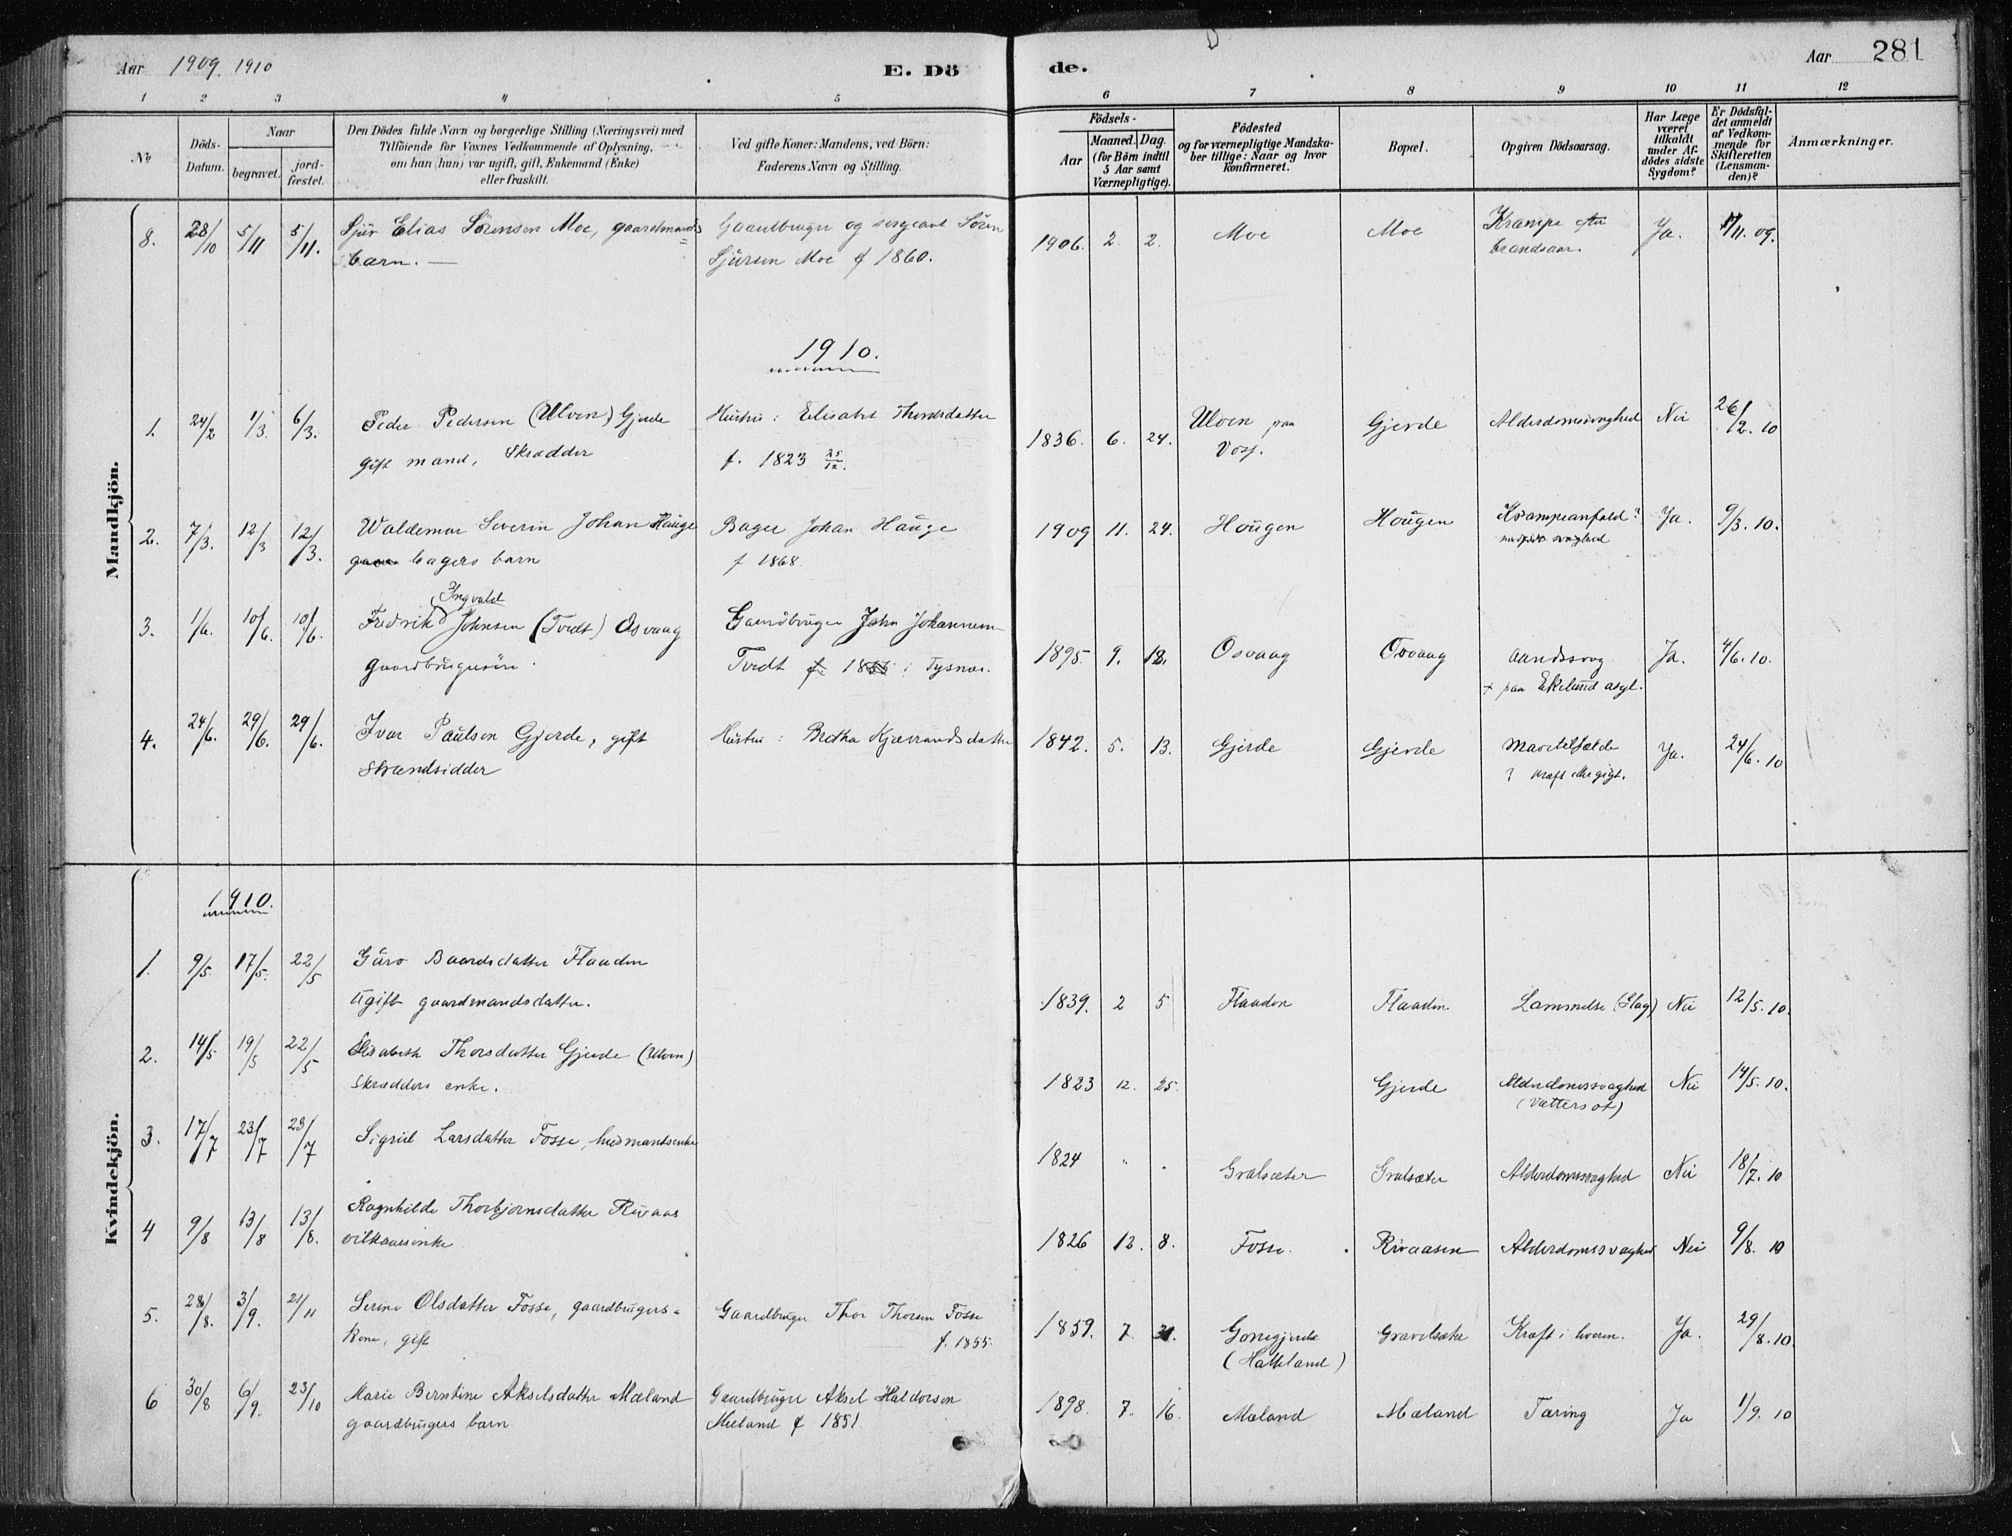 Aar 1909. 1910
E. Dö
de.
Aar
281
1 2 3 4 5 6 7 8 9 10 11 12
No
Döds-
Datum.
Naar
begravet.
jord-
fæstet.
Den Dödes fulde Navn og borgerlige Stilling (Næringsvei) med
Tilföiende for Voxnes Vedkommende af Oplysning,
om han (hun) var ugift, gift, Enkemand (Enke)
eller fraskilt.
Ved gifte Koner: Mandens, ved Börn:
Faderens Navn og Stilling.
Födsels-
Aar
Maaned. Dag.
(for Börn indtil
5 Aar samt
Værnepligtige).
Födested
og for værnepligtige Mandska-
ber tillige: Naar og hvor
konfirmeret.
Bopæl.
Opgiven Dödsaarsag.
Har Læge
været
tilkaldt
under Af-
dödes sidste
Sygdom?
Er Dödsfal-
det anmeldt
af Vedkom-
mende for
Skifteretten
(Lensman-
den)?
Anmærkninger.
Mandkjön.
8. 28/10 5/11 5/11. Sjur Elias Sörensen Moe, gaardmands= Gaardbruger og sergeant Sören 1906. 2. 2. Moe Moe Krampe efter Ja. 11. 09.
barn. — Sjursen Moe f 1860. brandsaar.
1910.
1. 24/2 1/3. 6/3. Peder Pedersen (Ulven) Gjerde Hustru: Elisabet Thorsdatter 1836. 6. 24. Ulven paa Gjerde Alderdomssvaghed Nei 26/2. 10
gift mand, Skrædder f. 1823 25/12. Voss.
2. 7/3. 12/3 12/3. Waldemar Severin Johan Hauge Bager Johan Hauge 1909 11. 24. Hougen Hougen Krampeanfald? Ja. 9/3. 10.
bagers barn f 1868 svaghed
Ingvald
3. 1/6. 10/6. 10/6. Fredrik Johnsen (Tvedt) Osvaag Gaardbruger John Johannesen 1895. 9. 12. Osvaag Osvaag aandssvag Ja. 4/6. 10.
gaardbrugersön. Tvedt f. i Tysnes. + paa Ekelund asyl.
4. 24/6. 29/6. 29/6. Ivar Paulsen Gjerde, gift Hustru: Bretha Kjævrandsdatter 1842. 5. 13. Gjerde Gjerde Ja. 24/6. 10
Strandsidder ? kræft eller gigt.
Kvindekjön.
1910.
1. 9/5 17/5. 22/5 Guro Baardsdatter Flaaden
ugift gaardmandsdatter. 1839. 2 5 Flaaden Flaaden. Lammelse (Slag) Nei 12/5. 10.
2. 14/5 19/5 22/5 Elisabeth Thorsdatter Gjerde (Ulven)
Skrædders enke. 1823 12. 25. Gjerde Alderdomssvaghed Nei 14/5. 10.
(Vattersot)
3. 17/7 23/7 23/7 Sigrid Larsdatter Fosse, husmandsenke
1824 " . Gralsæter Gralsæter Alderdomssvaghed Nei 18/7. 10
4 9/8 13/8 13/8. Ragnhilde Thorbjørnsdatter Rivaas
vilkaarsenke 1826 12. 8. Fosse. Rivaasen Alderdomssvaghed Nei 9/8. 10
5. 28/8. 3/9. 21/11 Serine Olsdatter Fosse, gaardbrugers= Gaardbruger Thor Thorsen Fosse 1859. 7. 31. Gonegjerde Gravelsæter Kræft i liveren. Ja. 29/8. 10
kone, gift f. 1855. (Hatleland)
6 30/8 6/9. 23/10 Marie Berntine Akselsdatter Mæland Gaardbruger Aksel Haldorsen 1898. 7. 16. Mæland Mæland Tæring Ja 1/9. 10
gaardbrugers barn Mæland f 1851